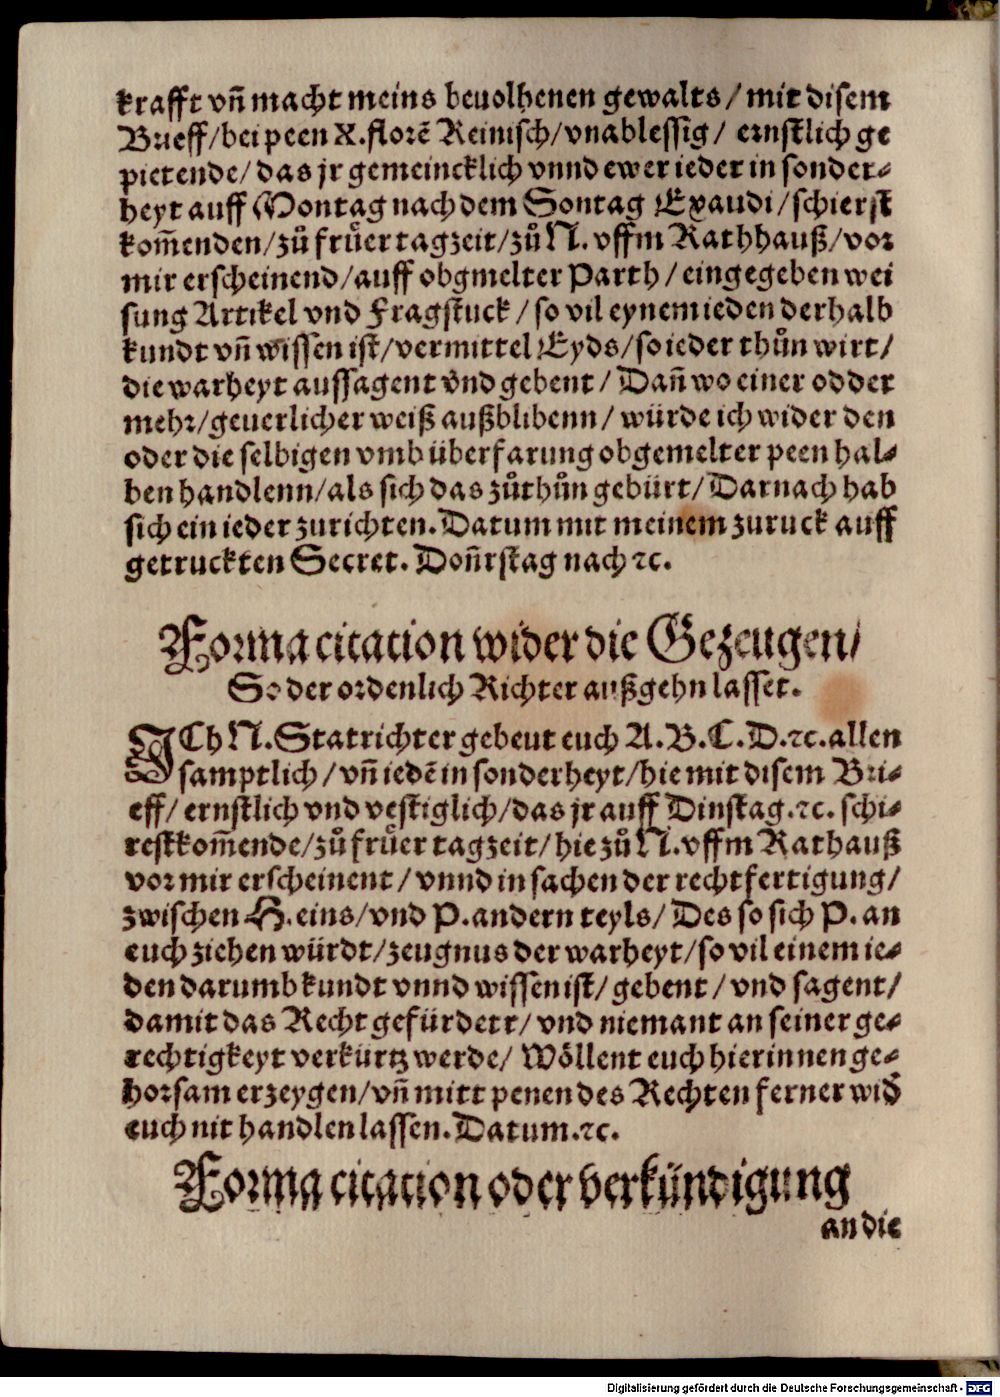 krafft vn̄ macht meins beuolhenen gewalts / mit disem
Brieff / bei peen X. florē Reinisch / vnablessig / ernstlich ge
pietende / das jr gemeincklich vnnd ewer ieder in sonder⸗
heyt auff Montag nach dem Sontag Exaudi / schierst
kom̄enden / zů frůer tagzeit / zů N. vffm Rathhauß / vor
mir erscheinend / auff obgmelter Parth / eingegeben wei
sung Artikel vnd Fragstuck / so vil eynem ieden derhalb
kundt vn̄ wissen ist / vermittel Eyds / so ieder thůn wirt /
die warheyt aussagent vnd gebent / Dan̄ wo einer odder
mehr / geuerlicher weiß außblibenn / würde ich wider den
oder die selbigen vmb überfarung obgemelter peen hal⸗
ben handlenn / als sich das zůthůn gebürt / Darnach hab
sich ein ieder zurichten. Datum mit meinem zuruck auff
getruckten Secret. Don̄rstag nach ꝛc.
Forma citation wider die Gezeugen /
So der ordenlich Richter außgehn lasset.
ICh N. Statrichter gebeut euch A. B. C. D. ꝛc. allen
samptlich / vn̄ iedē in sonderheyt / hie mit disem Bri⸗
eff / ernstlich vnd vestiglich / das jr auff Dinstag. ꝛc. schi⸗
restkom̄ende / zů frůer tagzeit / hie zů N. vffm Rathauß
vor mir erscheinent / vnnd in sachen der rechtfertigung /
zwischen H. eins / vnd P. andern teyls / Des so sich P. an
euch ziehen würdt / zeugnus der warheyt / so vil einem ie⸗
den darumb kundt vnnd wissen ist / gebent / vnd sagent /
damit das Recht gefürdert / vnd niemant an seiner ge⸗
rechtigkeyt verkürtz werde / Wöllent euch hierinnen ge⸗
horsam erzeygen / vn̄ mitt penen des Rechten ferner wid̄
euch nit handlen lassen. Datum. ꝛc.
Forma citation oder verkündigung
an die
Digitalisierung gefördert durch die Deutsche Forschungsgemeinschaft - DFG